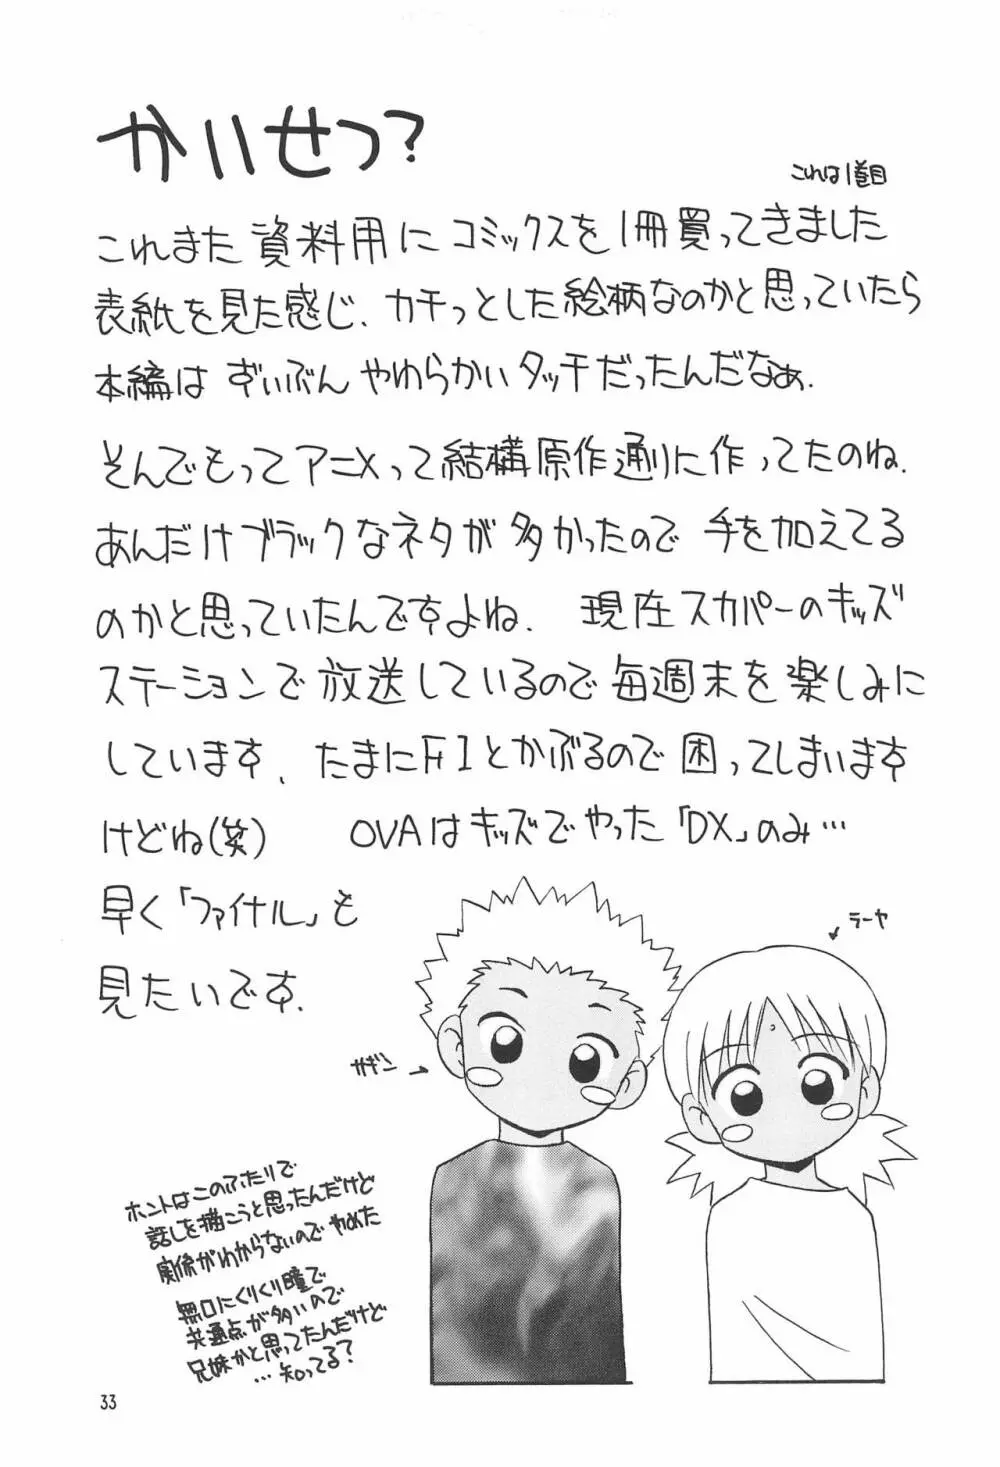 かいせつ?
これは1巻目
これまた資料用にコミックスを1冊買ってきました
表紙を見た感じ、カチっとした絵柄なのかと思っていたら
本編はずいぶんやわらかいタッチだったんだなぁ.
そんでもってアニメって結構原作通りに作ってたのね.
あんだけブラックなネタが多かったので 手を加えてる
のかと思っていたんですよね. 現在スカパーのキッズ
ステーションで放送しているので毎週末を楽しみに
しています、たまにF1とかぶるので困ってしまいます
けどね(笑) OVAはキッズでやった「DX」のみ…
早く「ファイナル」も
見たいです.
ラーヤ
ガギン
ホントはこのふたりで
話しを描こうと思ったんだけど
実像がわからないのでやめた
無口にくりくり瞳で
共通点が多いので
兄妹かと思ってたんだけど
…知ってる?
33